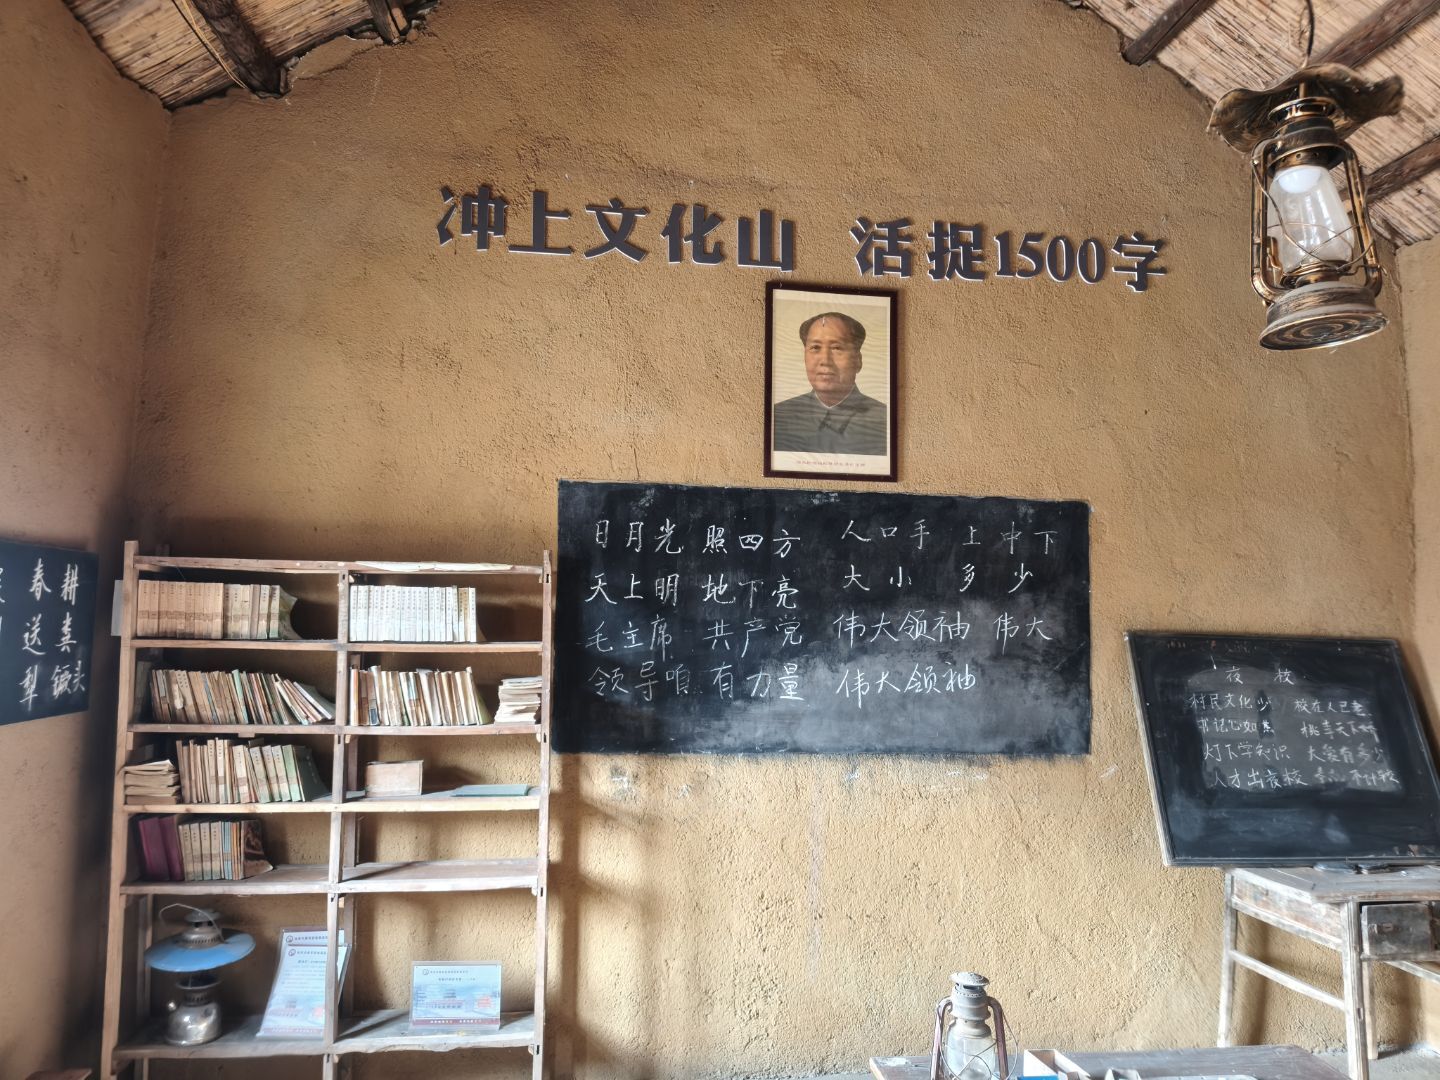 冲上文化山 活捉1500字
日月光 照四方 人口手 上中下
天上明 地下亮 大小 多少
毛主席 共产党 伟大领袖 伟大
领导咱 有力量 伟大领袖
春耕
送粪
犁 镢头
夜校
村民文化少 校在人已老
书记心如焦 桃李天下娇
灯下学知识 大爱有多少
人才出夜校